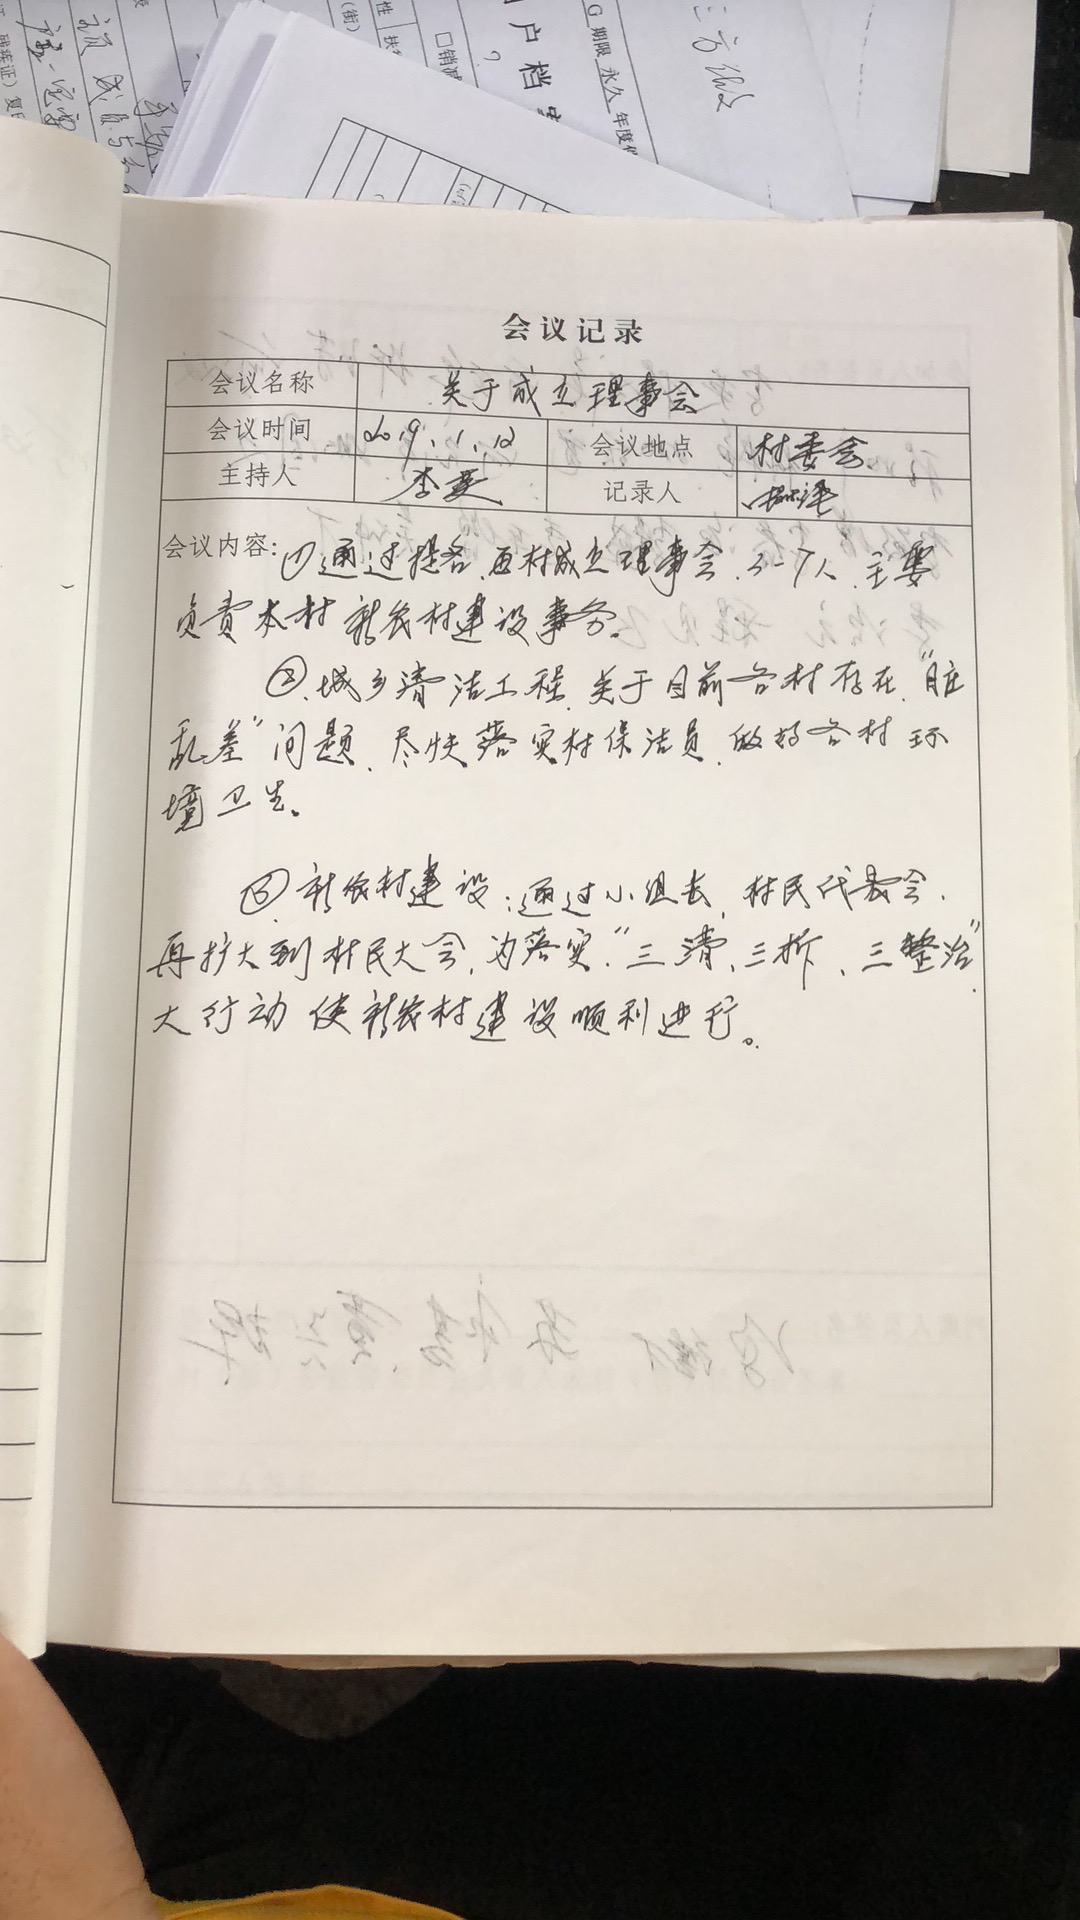 G 期限 永久 年度
户档
会议记录
会议名称 关于成立理事会
会议时间 2019.1.12 会议地点 村委会
主持人 李 记录人
会议内容: ①通过提名,西村成立理事会,3-7人,主要
负责本村新农村建设事务。
②.城乡清洁工程,关于目前各村存在"脏
乱差"问题,尽快落实村保洁员,做好各村环
境卫生。
③新农村建设:通过小组长,村民代表会,
再扩大到村民大会,为落实"三清、三拆、三整治"
大行动使新农村建设顺利进行。